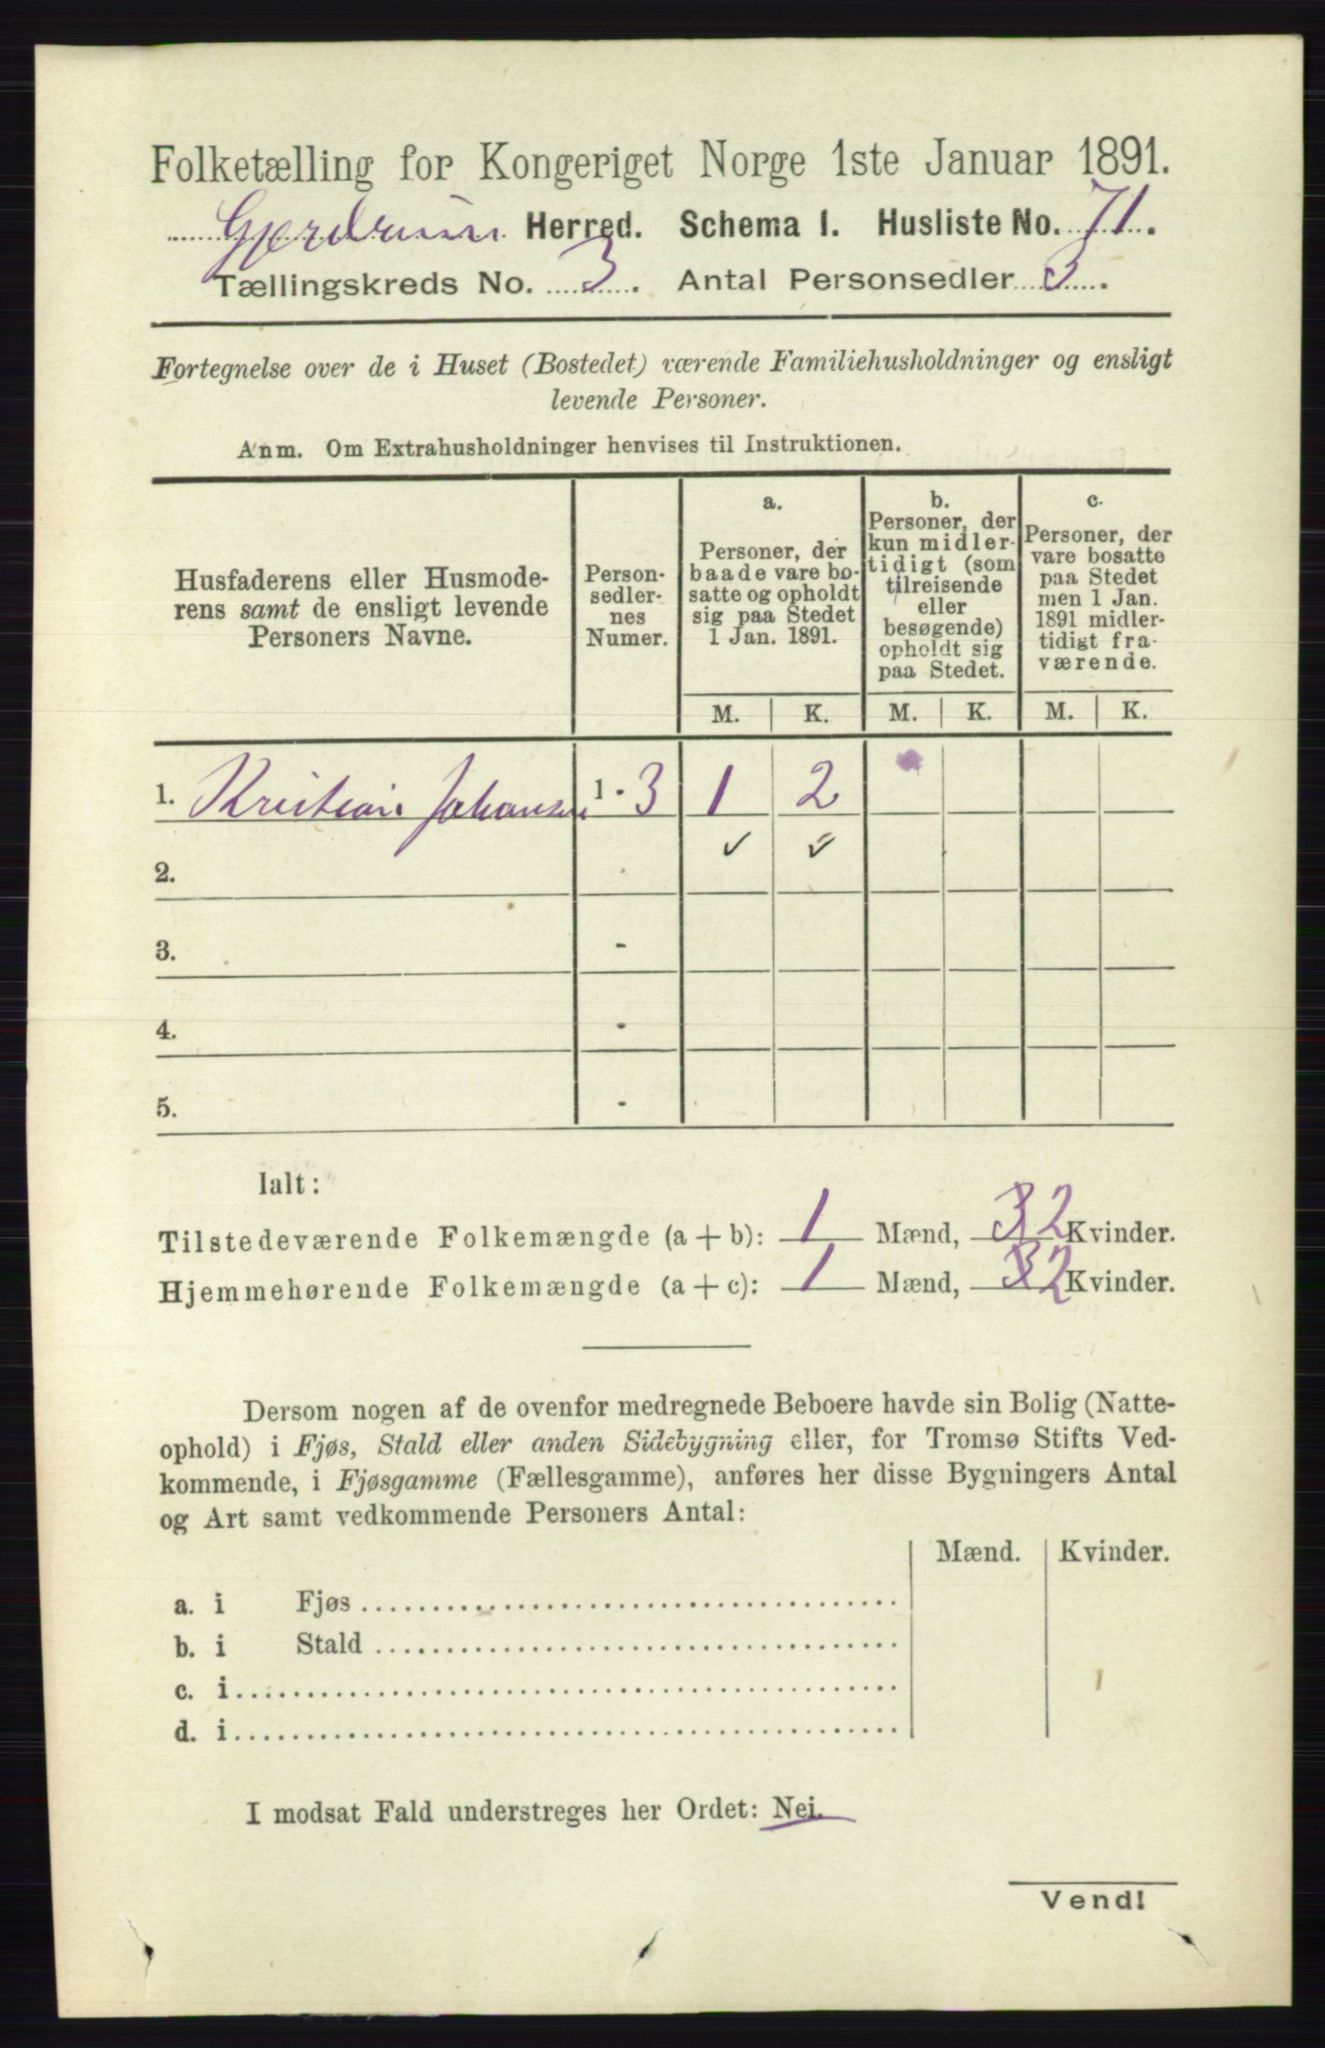 Folketælling for Kongeriget Norge 1ste Januar 1891.
Gjerdrum Herred. Schema I. Husliste No. 71.
Tællingskreds No. 3. Antal Personsedler 3.
Fortegnelse over de i Huset (Bostedet) værende Familiehusholdninger og ensligt
levende Personer.
Anm. Om Extrahusholdninger henvises til Instruktionen.
Husfaderens eller Husmode-
rens samt de ensligt levende
Personers Navne.
Person-
sedler-
nes
Numer.
a.
Personer, der
baade vare bo-
satte og opholdt
sig paa Stedet
1 Jan. 1891.
b.
Personer, der
kun midler-
tidigt (som
tilreisende
eller
besøgende)
opholdt sig
paa Stedet.
c.
Personer, der
vare bosatte
paa Stedet
men 1 Jan.
1891 midler-
tidigt fra-
værende.
M. K. M. K. M. K.
1. Kristian Johansen 1 - 3 1 2
2. -
3. -
4. -
5. -
Ialt:
Tilstedeværende Folkemængde (a + b): 1 Mænd, 3 2 Kvinder.
Hjemmehørende Folkemængde (a + c): 1 Mænd, 3 2 Kvinder.
Dersom nogen af de ovenfor medregnede Beboere havde sin Bolig (Natte-
ophold) i Fjøs, Stald eller anden Sidebygning eller, for Tromsø Stifts Ved-
kommende, i Fjøsgamme (Fællesgamme), anføres her disse Bygningers Antal
og Art samt vedkommende Personers Antal:
Mænd. Kvinder.
a. i Fjøs
b. i Stald
c. i
d. i
I modsat Fald understreges her Ordet: Nei.
Vend!